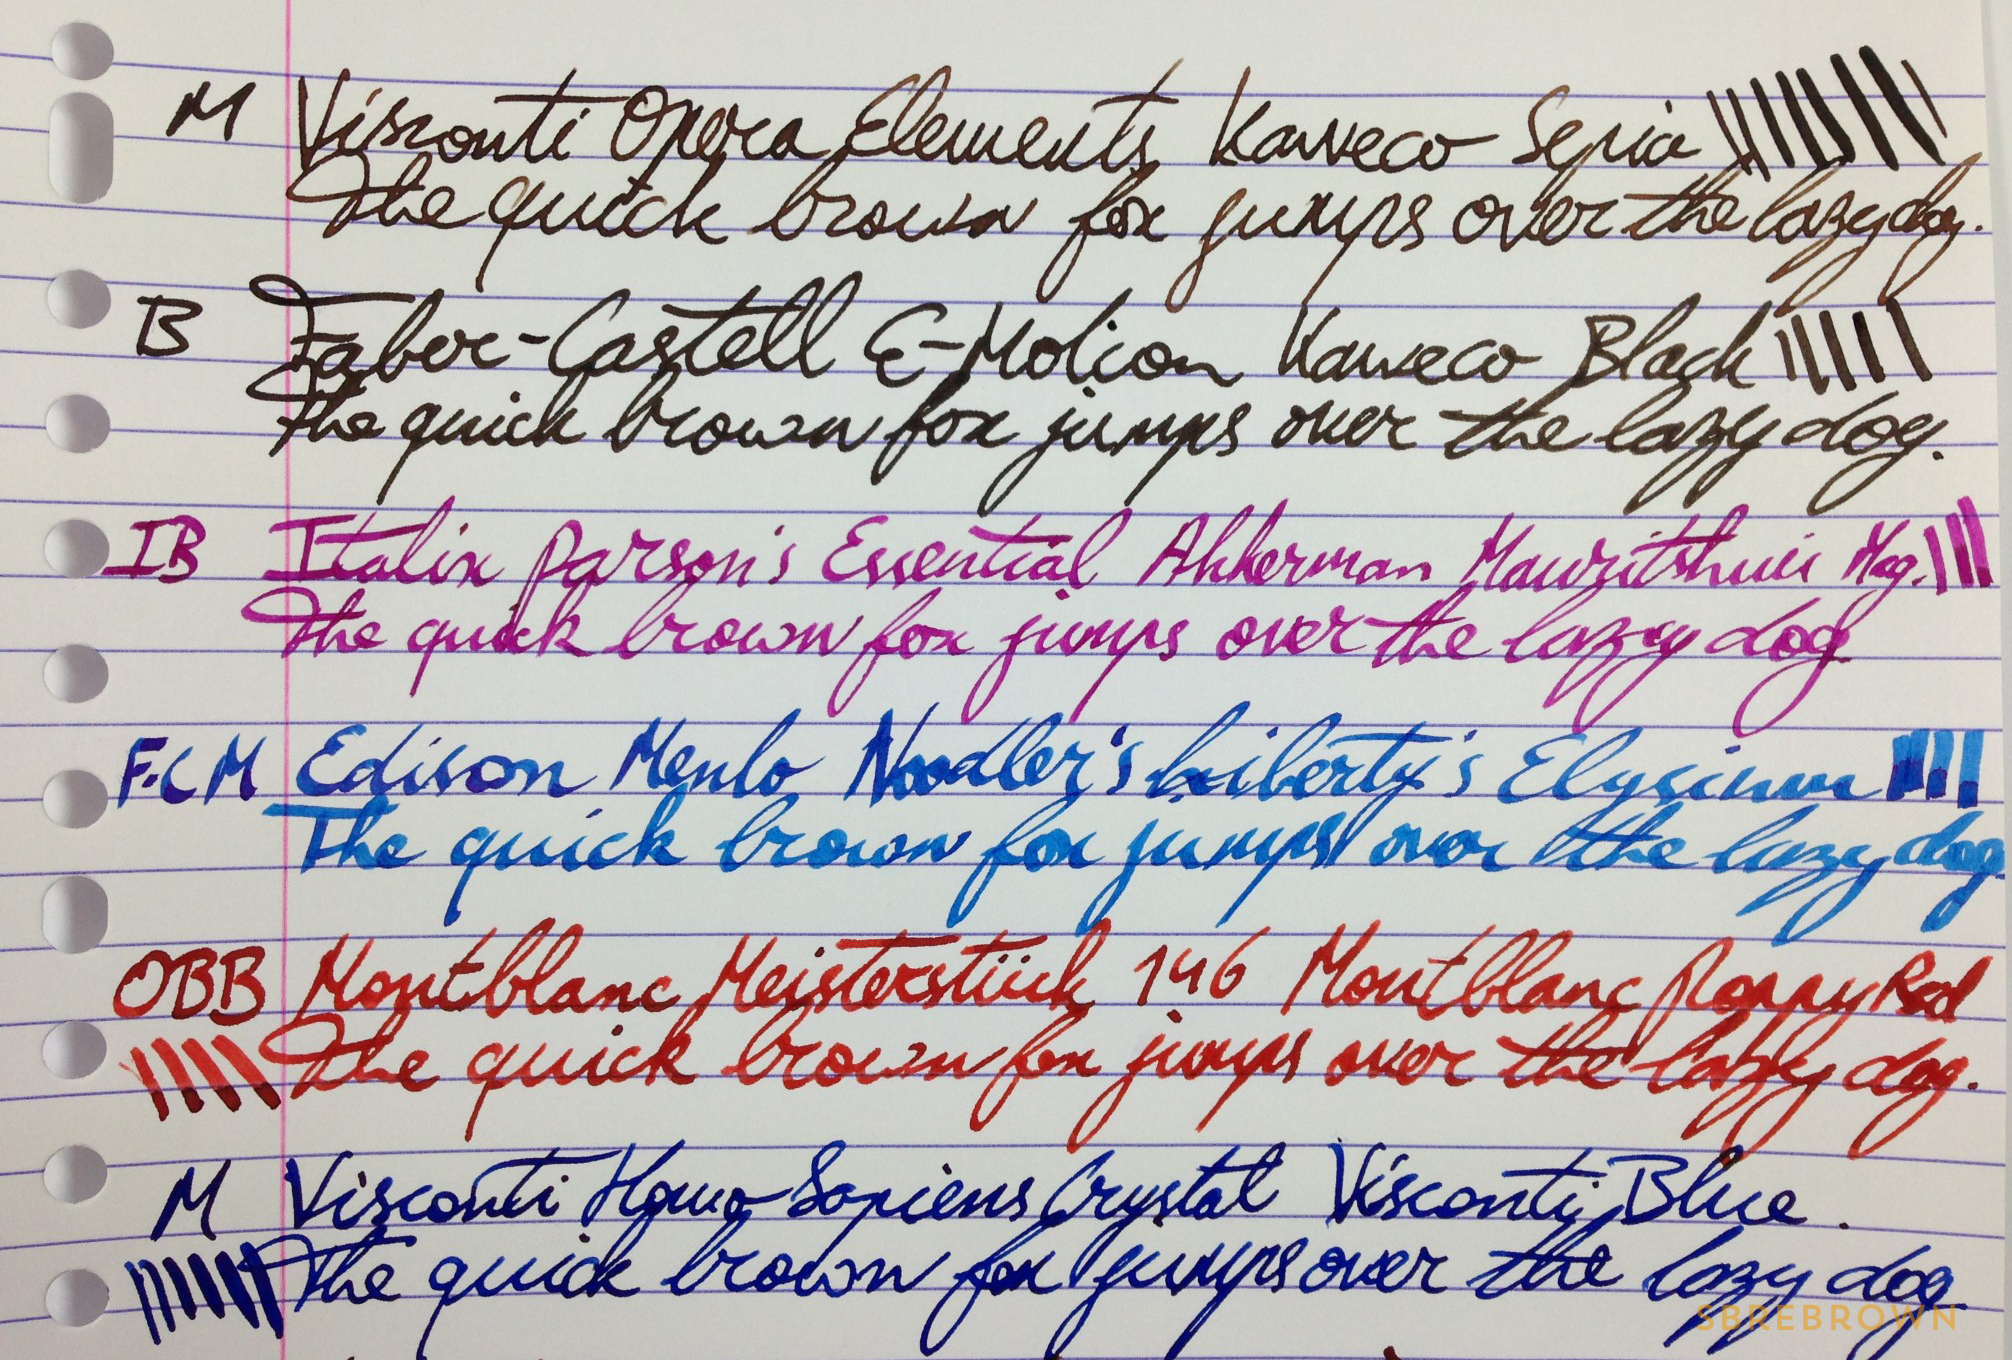 M Visconti Opera Elements Kaweco Sepia
The quick brown fox jumps over the lazy dog.
B Faber-Castell E-Motion Kaweco Black
The quick brown fox jumps over the lazy dog.
IB Italix Parson's Essential Akkerman Mauritshuis Mag.
The quick brown fox jumps over the lazy dog
F.C M Edison Menlo Noodler's Liberty's Elysium
The quick brown fox jumps over the lazy dog.
OBB Montblanc Meisterstück 146 Montblanc Poppy Red
The quick brown fox jumps over the lazy dog.
M Visconti Homo Sapiens Crystal Visconti Blue.
The quick brown fox jumps over the lazy dog
SBREBROWN